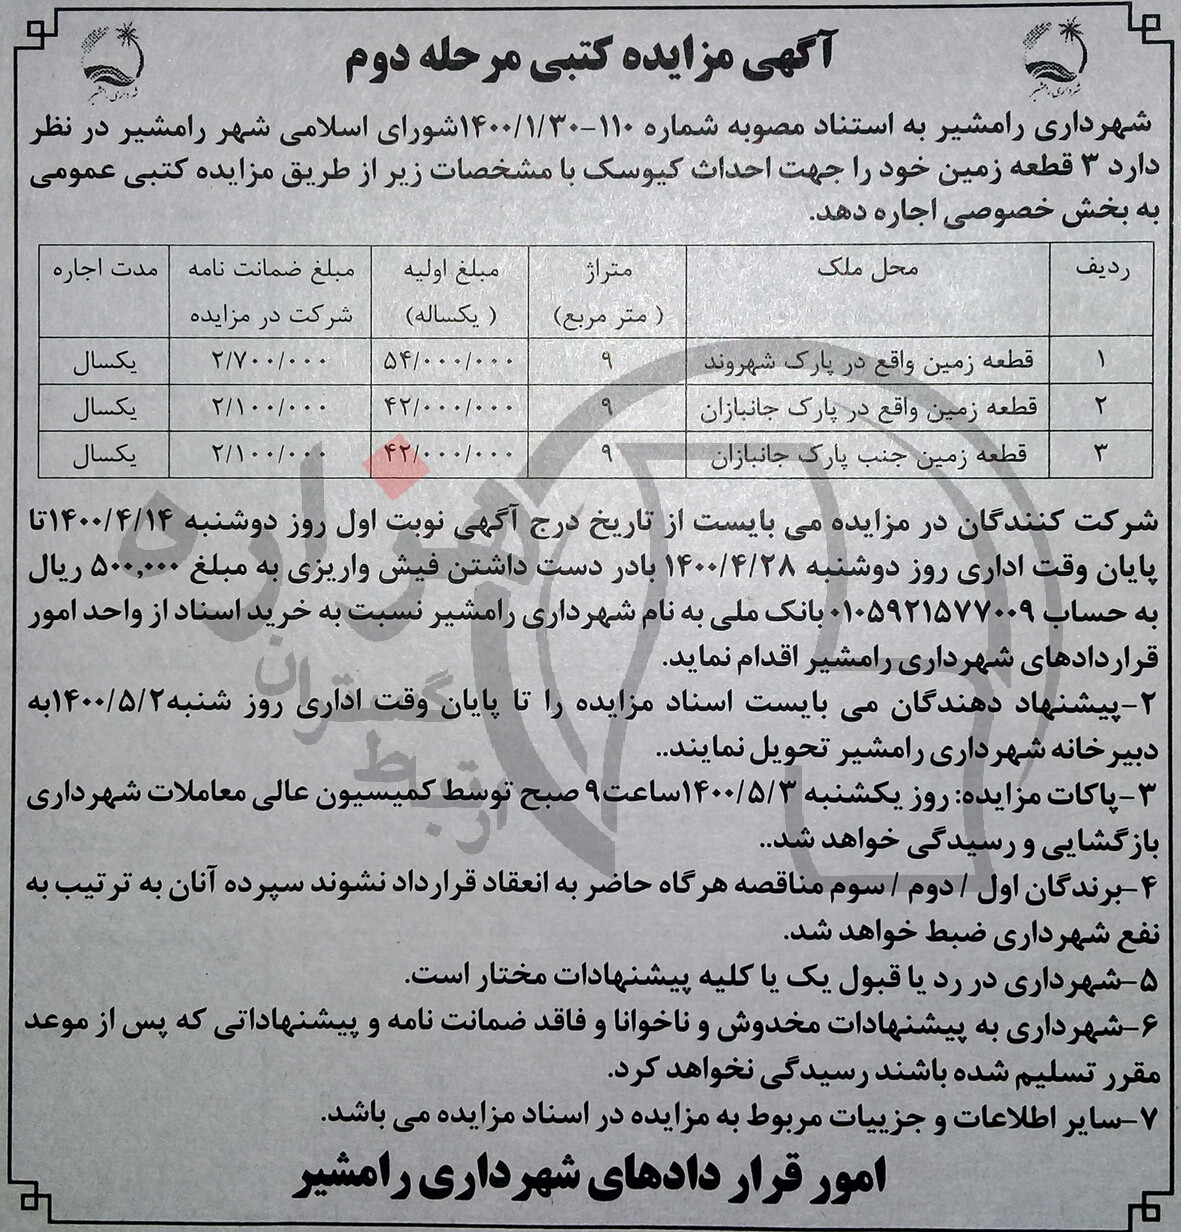 آگهی مزایده کتبی مرحله دوم
شهرداری رامشیر
شهرداری رامشیر
شهرداری رامشیر به استناد مصوبه شماره ۱۱۰-۱۴۰۰/۱/۳۰شورای اسلامی شهر رامشیر در نظر
دارد ۳ قطعه زمین خود را جهت احداث کیوسک با مشخصات زیر از طریق مزایده کتبی عمومی
به بخش خصوصی اجاره دهد.
ردیف محل ملک متراژ مبلغ اولیه مبلغ ضمانت نامه مدت اجاره
( متر مربع) ( یکساله) شرکت در مزایده
۱ قطعه زمین واقع در پارک شهروند ۹ ۵۴/۰۰۰/۰۰۰ ۲/۷۰۰/۰۰۰ یکسال
۲ قطعه زمین واقع در پارک جانبازان ۹ ۴۲/۰۰۰/۰۰۰ ۲/۱۰۰/۰۰۰ یکسال
۳ قطعه زمین جنب پارک جانبازان ۹ ۴۲/۰۰۰/۰۰۰ ۲/۱۰۰/۰۰۰ یکسال
شرکت کنندگان در مزایده می بایست از تاریخ درج آگهی نوبت اول روز دوشنبه ۱۴۰۰/۴/۱۴تا
پایان وقت اداری روز دوشنبه ۱۴۰۰/۴/۲۸ بادر دست داشتن فیش واریزی به مبلغ ۵۰۰,۰۰۰ ریال
به حساب ۰۱۰۵۹۲۱۵۷۷۰۰۹ بانک ملی به نام شهرداری رامشیر نسبت به خرید اسناد از واحد امور
قراردادهای شهرداری رامشیر اقدام نماید.
۲-پیشنهاد دهندگان می بایست اسناد مزایده را تا پایان وقت اداری روز شنبه۱۴۰۰/۵/۲به
دبیرخانه شهرداری رامشیر تحویل نمایند..
۳-پاکات مزایده: روز یکشنبه ۱۴۰۰/۵/۳ساعت۹ صبح توسط کمیسیون عالی معاملات شهرداری
بازگشایی و رسیدگی خواهد شد..
۴-برندگان اول / دوم / سوم مناقصه هرگاه حاضر به انعقاد قرارداد نشوند سپرده آنان به ترتیب به
نفع شهرداری ضبط خواهد شد.
۵-شهرداری در رد یا قبول یک یا کلیه پیشنهادات مختار است.
۶-شهرداری به پیشنهادات مخدوش و ناخوانا و فاقد ضمانت نامه و پیشنهاداتی که پس از موعد
مقرر تسلیم شده باشند رسیدگی نخواهد کرد.
۷-سایر اطلاعات و جزییات مربوط به مزایده در اسناد مزایده می باشد.
امور قرار دادهای شهرداری رامشیر
هزاره
گستران
ارتباط